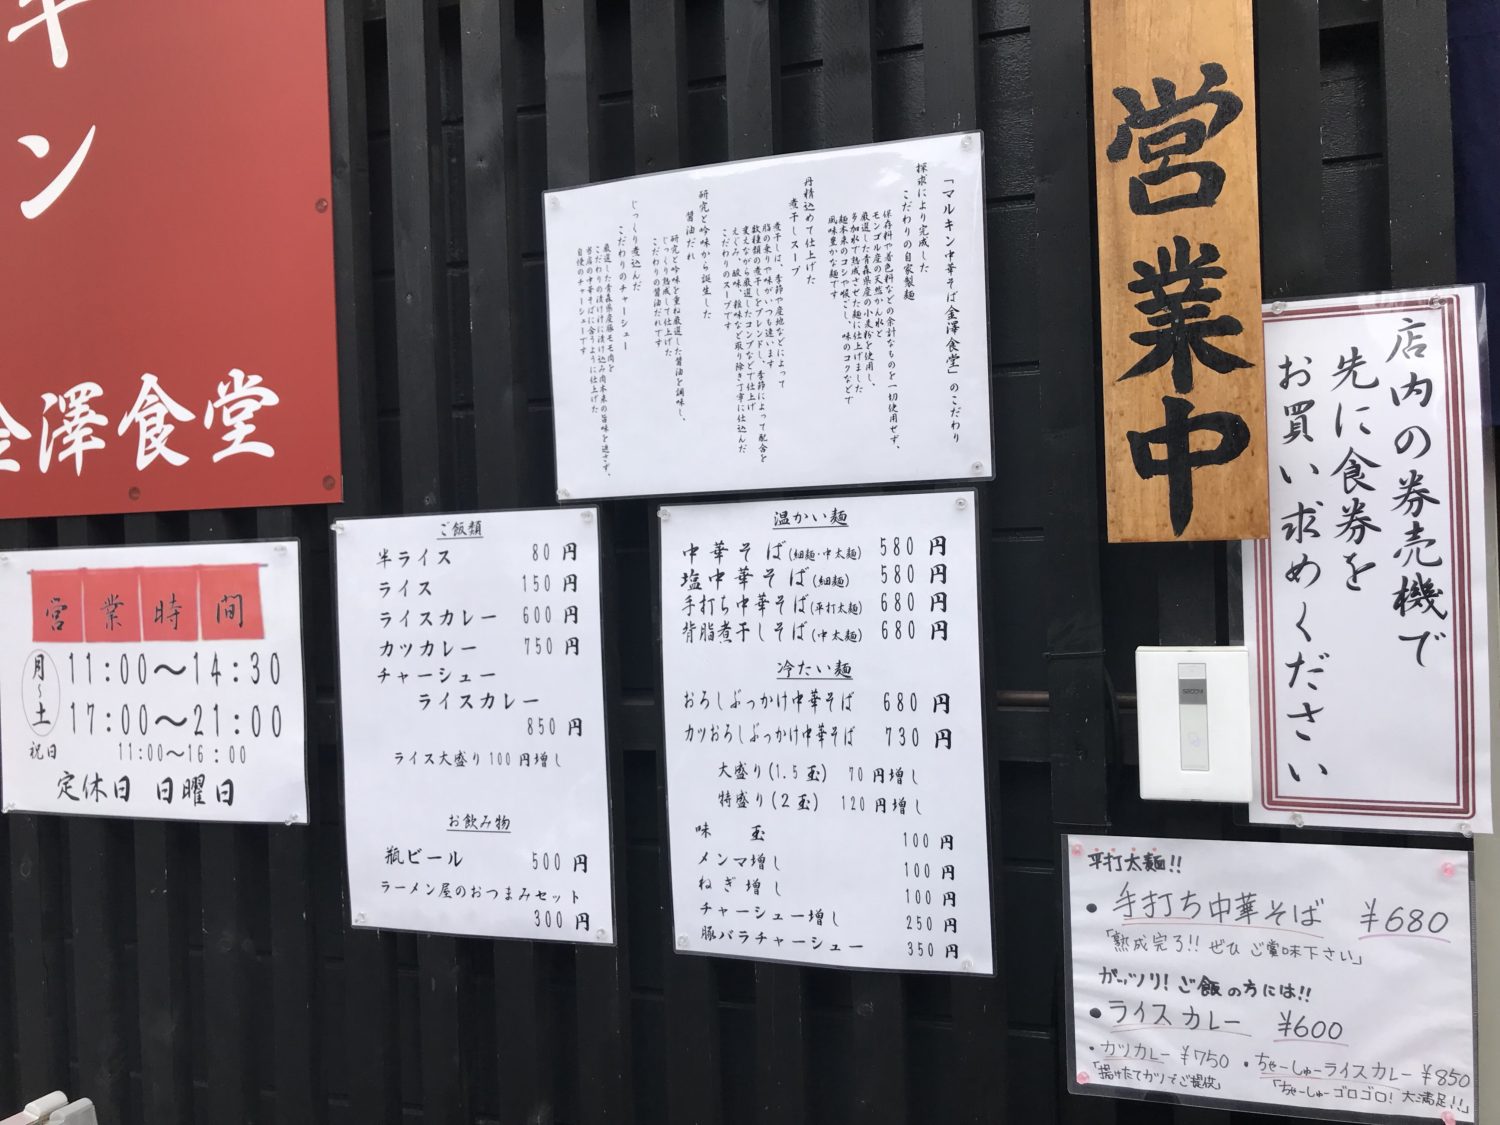 キン
金澤食堂
営業時間
月～土
11:00～14:30
17:00～21:00
祝日 11:00～16:00
定休日 日曜日
ご飯類
半ライス 80円
ライス 150円
ライスカレー 600円
カツカレー 750円
チャーシュー
ライスカレー
850円
ライス大盛り100円増し
お飲み物
瓶ビール 500円
ラーメン屋のおつまみセット
300円
「マルキン中華そば金澤食堂」のこだわり
探求により完成した
こだわりの自家製麺
保存料や着色料などの余計なものを一切使用せず、
モンゴル産の天然かん水と
厳選した青森県産の小麦粉を使用し、
多加水で熟成させた麺に仕上げました
麺本来のコシや喉ごし、味のコクなどで
風味豊かな麺です
丹精込めて仕上げた
煮干しスープ
煮干しは、季節や産地などによって
脂の乗りや味がいつも違います
数種類の煮干しをブレンドし、季節によって配合を
変えながら厳選したコンブなどで仕上げ
えぐみ、酸味、雑味など取り除き丁寧に仕込んだ
こだわりのスープです
研究と吟味から誕生した
醤油だれ
研究と吟味を重ね厳選した醤油を調味し、
じっくり熟成して仕上げた
こだわりの醤油だれです
じっくり煮込んだ
こだわりのチャーシュー
厳選した青森県産豚モモ肉を
こだわりの漬けだれに漬け込み肉本来の旨味を逃さず、
当店の中華そばに合うように仕上げた
自慢のチャーシューです
温かい麺
中華そば(細麺・中太麺) 580円
塩中華そば(細麺) 580円
手打ち中華そば(平打太麺) 680円
背脂煮干しそば(中太麺) 680円
冷たい麺
おろしぶっかけ中華そば 680円
カツおろしぶっかけ中華そば 730円
大盛り(1.5玉) 70円増し
特盛り(2玉) 120円増し
味玉 100円
メンマ増し 100円
ねぎ増し 100円
チャーシュー増し 250円
豚バラチャーシュー 350円
営業中
店内の券売機で
先に食券を
お買い求めください
平打太麺!!
・手打ち中華そば ¥680
「熟成完了!! ぜひ ご賞味下さい」
ガッツリ! ご飯の方には!!
・ライスカレー ¥600
・カツカレー ¥750 ・ちゃーしゅーライスカレー ¥850
「揚げたてカツでご提供」 「ちゃーしゅーゴロゴロ! 大満足!!」